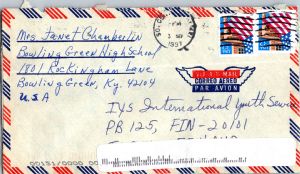 Mrs Janet Chamberlin
Bowling Green High School
1801 Rockingham Lane
Bowling Green, Ky. 42104
U.S.A
PM
1997
AIR MAIL
CORREO AEREO
PAR AVION
IYS International Youth Service
PB 125, FIN-20101